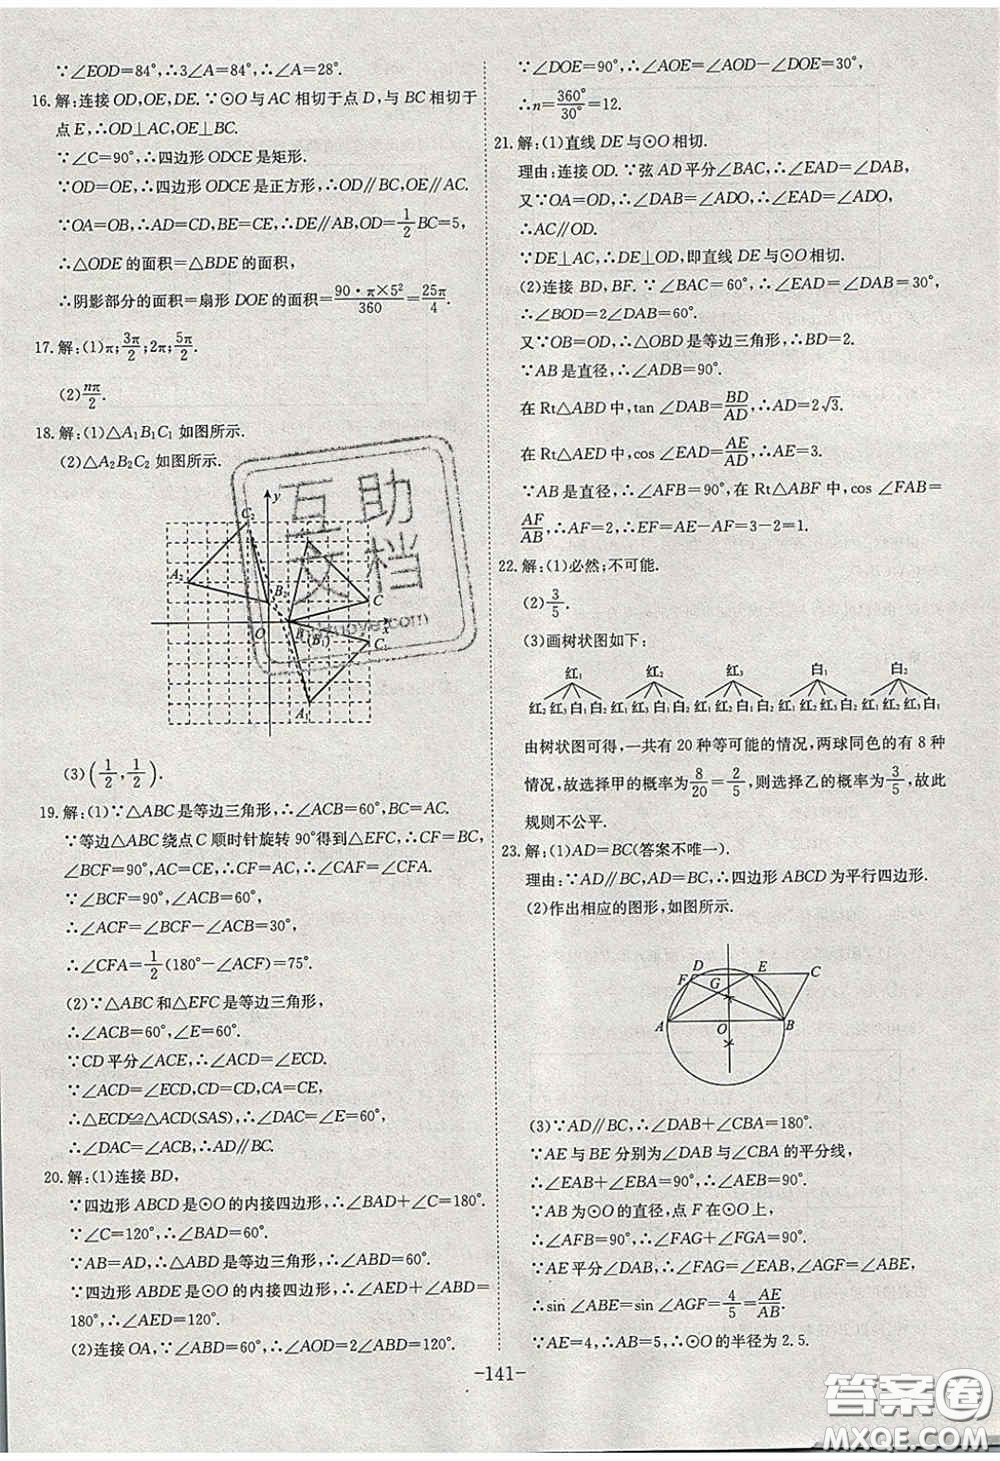 ∵∠EOD=84°,∴3∠A=84°,∴∠A=28°.
16.解:连接OD,OE,DE.∵⊙O与AC相切于点D,与BC相切于
点E,∴OD⊥AC,OE⊥BC.
∵∠C=90°,∴四边形ODCE是矩形.
∵OD=OE,∴四边形ODCE是正方形,∴OD∥BC,OE∥AC.
∵OA=OB,∴AD=CD,BE=CE,∴DE∥AB,OD=1/2BC=5,
∴△ODE的面积=△BDE的面积,
∴阴影部分的面积=扇形DOE的面积=90·π×5²/360=25π/4.
17.解:(1)π;3π/2;2π;5π/2.
(2)nπ/2.
18.解:(1)△A₁B₁C₁如图所示.
(2)△A₂B₂C₂如图所示.
y
C₂
A₂
B₂
C
O
B
(B₁)
x
C₁
A₁
互助
文档
(3)(1/2,1/2).
19.解:(1)∵△ABC是等边三角形,∴∠ACB=60°,BC=AC.
∵等边△ABC绕点C顺时针旋转90°得到△EFC,∴CF=BC,
∠BCF=90°,AC=CE,∴CF=AC,∴∠CAF=∠CFA.
∵∠BCF=90°,∠ACB=60°,
∴∠ACF=∠BCF−∠ACB=30°,
∴∠CFA=1/2(180°−∠ACF)=75°.
(2)∵△ABC和△EFC是等边三角形,
∴∠ACB=60°,∠E=60°.
∵CD平分∠ACE,∴∠ACD=∠ECD.
∵∠ACD=∠ECD,CD=CD,CA=CE,
∴△ECD≌△ACD(SAS),∴∠DAC=∠E=60°,
∴∠DAC=∠ACB,∴AD∥BC.
20.解:(1)连接BD,
∵四边形ABCD是⊙O的内接四边形,∴∠BAD+∠C=180°.
∵∠C=120°,∴∠BAD=60°.
∵AB=AD,∴△ABD是等边三角形,∴∠ABD=60°.
∵四边形ABDE是⊙O的内接四边形,∴∠AED+∠ABD=
180°,∴∠AED=120°.
(2)连接OA,∵∠ABD=60°,∴∠AOD=2∠ABD=120°.
∵∠DOE=90°,∴∠AOE=∠AOD−∠DOE=30°,
∴n=360°/30°=12.
21.解:(1)直线DE与⊙O相切.
理由:连接OD.∵弦AD平分∠BAC,∴∠EAD=∠DAB,
又∵OA=OD,∴∠DAB=∠ADO,∴∠EAD=∠ADO,
∴AC∥OD.
∵DE⊥AC,∴DE⊥OD,即直线DE与⊙O相切.
(2)连接BD,BF.∵∠BAC=60°,∴∠EAD=∠DAB=30°,
∴∠BOD=2∠DAB=60°.
又∵OB=OD,∴△OBD是等边三角形,∴BD=2.
∵AB是直径,∴∠ADB=90°.
在Rt△ABD中,tan∠DAB=BD/AD,∴AD=2√3.
在Rt△AED中,cos∠EAD=AE/AD,∴AE=3.
∵AB是直径,∴∠AFB=90°,在Rt△ABF中,cos∠FAB=
AF/AB,∴AF=2,∴EF=AE−AF=3−2=1.
22.解:(1)必然;不可能.
(2)3/5.
(3)画树状图如下:
红₁ 红₂ 红₃ 白₁ 白₂
红₂ 红₃ 白₁ 白₂ 红₁ 红₃ 白₁ 白₂ 红₁ 红₂ 白₁ 白₂ 红₁ 红₂ 红₃ 白₂ 红₁ 红₂ 红₃ 白₁
由树状图可得,一共有20种等可能的情况,两球同色的有8种
情况,故选择甲的概率为8/20=2/5,则选择乙的概率为3/5,故此
规则不公平.
23.解:(1)AD=BC(答案不唯一).
理由:∵AD∥BC,AD=BC,∴四边形ABCD为平行四边形.
(2)作出相应的图形,如图所示.
D
E
C
F
G
A
O
B
(3)∵AD∥BC,∴∠DAB+∠CBA=180°.
∵AE与BE分别为∠DAB与∠CBA的平分线,
∴∠EAB+∠EBA=90°,∴∠AEB=90°.
∵AB为⊙O的直径,点F在⊙O上,
∴∠AFB=90°,∴∠FAG+∠FGA=90°.
∵AE平分∠DAB,∴∠FAG=∠EAB,∴∠AGF=∠ABE,
∴sin∠ABE=sin∠AGF=4/5=AE/AB.
∵AE=4,∴AB=5,∴⊙O的半径为2.5.
-141-
答案圈
MXQE.COM